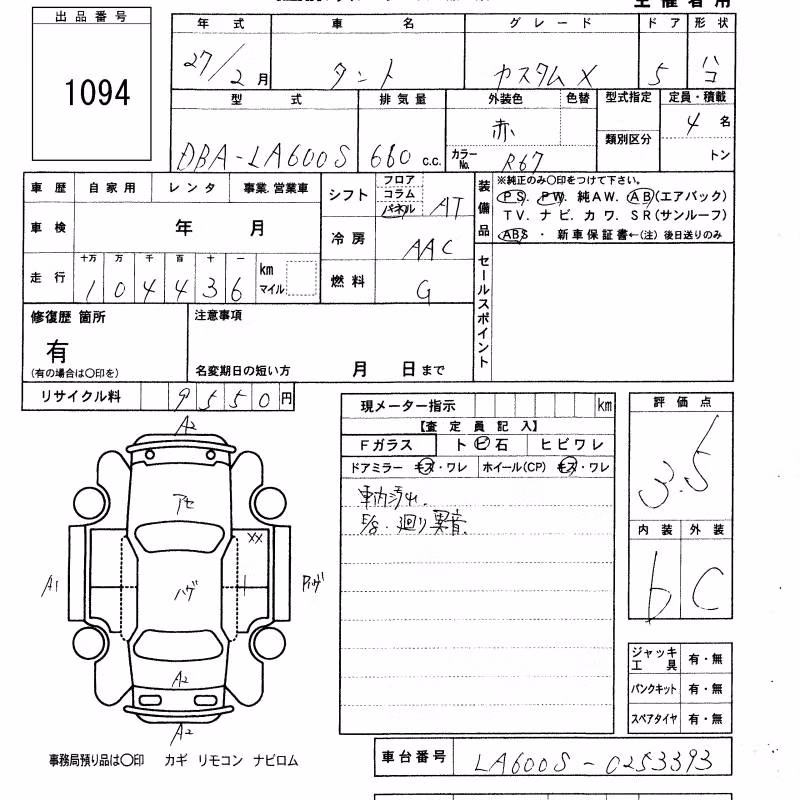 出品番号
1094
年式 車名 グレード ドア 形状
27/2月 タント カスタムX 5 ハコ
型式 排気量 外装色 色替 型式指定 定員・積載
DBA-LA600S 660 c.c. 赤 類別区分 4名
カラーNo. R67 トン
車歴 自家用 レンタ 事業.営業車
車検 年 月
走行 十万 万 千 百 十 一
1 0 4 4 3 6 km マイル
シフト フロア コラム パネル AT
冷房 AAC
燃料 G
装備品
※純正のみ○印をつけて下さい。
PS. PW. 純AW. AB(エアバック)
TV. ナビ. カワ. SR(サンルーフ)
ABS ・ 新車保証書←(注) 後日送りのみ
セールスポイント
修復歴 箇所
有
(有の場合は○印を)
注意事項
名変期日の短い方 月 日まで
リサイクル料 9550円
現メーター指示 km
【査定員記入】
Fガラス ト ビ 石 ヒビワレ
ドアミラー キズ・ワレ ホイール(CP) キズ・ワレ
車内汚れ.
廻り異音.
評価点
3.5
内装 外装
b C
A2
アセ
XX
A1 ハゲ
A2
A2
ジャッキ工具 有・無
パンクキット 有・無
スペアタイヤ 有・無
事務局預り品は○印 カギ リモコン ナビロム
車台番号 LA600S-0253393